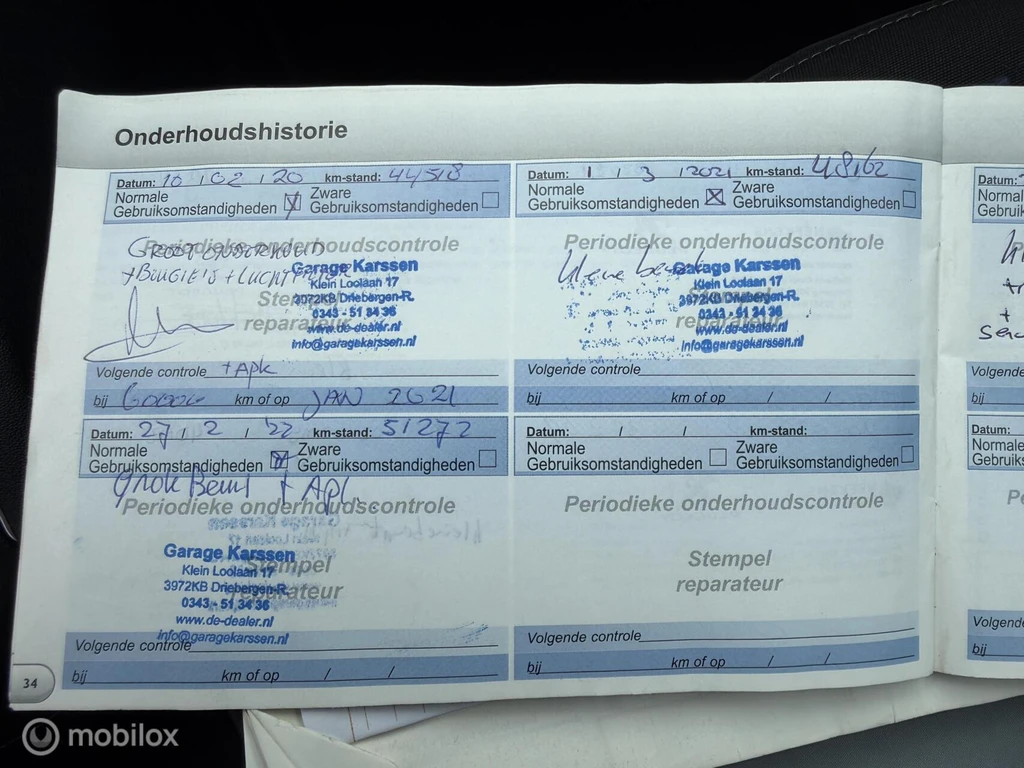 Onderhoudshistorie
Datum: 10 / 02 / 20 km-stand: 44518
Normale
Gebruiksomstandigheden
Zware
Gebruiksomstandigheden
Periodieke onderhoudscontrole
GROOT ONDERHOUD
+ BOUGIE'S + LUCHTFILTER
Garage Karssen
Klein Loolaan 17
3972KB Driebergen-R.
0343 - 51 34 36
www.de-dealer.nl
info@garagekarssen.nl
Stempel
reparateur
Volgende controle + Apk
bij 60000 km of op JAN 2021
Datum: 1 / 3 / 2021 km-stand: 48162
Normale
Gebruiksomstandigheden
Zware
Gebruiksomstandigheden
Periodieke onderhoudscontrole
Kleine beurt
Garage Karssen
Klein Loolaan 17
3972KB Driebergen-R.
0343 - 51 34 36
www.de-dealer.nl
info@garagekarssen.nl
Stempel
reparateur
Volgende controle
bij km of op / /
Datum: 27 / 2 / '22 km-stand: 51272
Normale
Gebruiksomstandigheden
Zware
Gebruiksomstandigheden
Grote Beurt + APK.
Periodieke onderhoudscontrole
Garage Karssen
Klein Loolaan 17
3972KB Driebergen-R.
0343 - 51 34 36
www.de-dealer.nl
info@garagekarssen.nl
Stempel
reparateur
Volgende controle
bij km of op / /
Datum: / / km-stand:
Normale
Gebruiksomstandigheden
Zware
Gebruiksomstandigheden
Periodieke onderhoudscontrole
Stempel
reparateur
Volgende controle
bij km of op / /
34
Datum:
Normale
Gebruik
+
Volgende
bij
Datum:
Normale
Gebruiks
Volgende
bij
mobilox